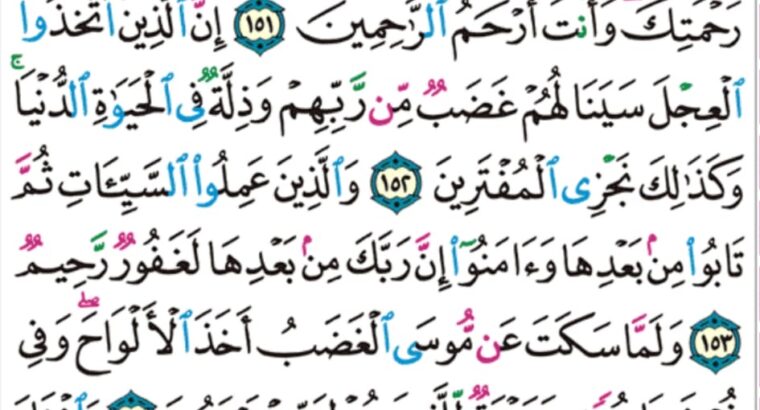 رَحْمَتِكَ وَأَنتَ أَرْحَمُ ٱلرَّٰحِمِينَ ١٥١ إِنَّ ٱلَّذِينَ ٱتَّخَذُوا۟
ٱلْعِجْلَ سَيَنَالُهُمْ غَضَبٌ مِّن رَّبِّهِمْ وَذِلَّةٌ فِى ٱلْحَيَوٰةِ ٱلدُّنْيَا ۚ
وَكَذَٰلِكَ نَجْزِى ٱلْمُفْتَرِينَ ١٥٢ وَٱلَّذِينَ عَمِلُوا۟ ٱلسَّيِّـَٔاتِ ثُمَّ
تَابُوا۟ مِنۢ بَعْدِهَا وَءَامَنُوٓا۟ إِنَّ رَبَّكَ مِنۢ بَعْدِهَا لَغَفُورٌ رَّحِيمٌ
١٥٣ وَلَمَّا سَكَتَ عَن مُّوسَى ٱلْغَضَبُ أَخَذَ ٱلْأَلْوَاحَ ۖ وَفِى